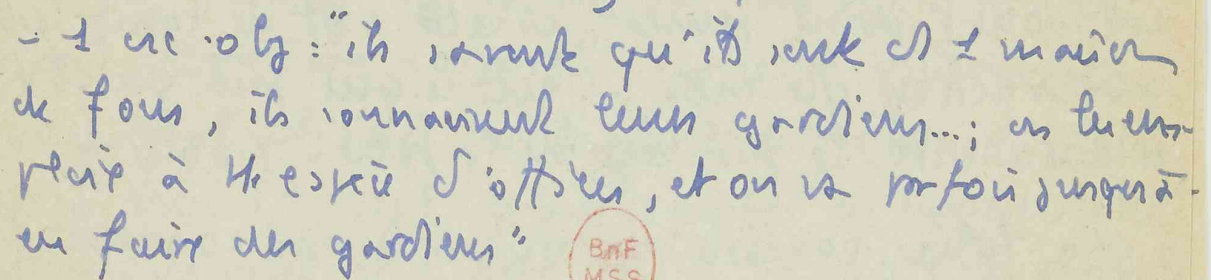 - 1 obj : "ils savent qu'ils sont ds 1 maison
de fous, ils connaissent leurs gardiens...; on les em-
ploie à tte espèce d'offices, et on va parfois jusqu'à
en faire des gardiens"
BnF
MSS